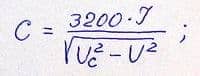 C = 3200·J / √(U_c² - U²) ;